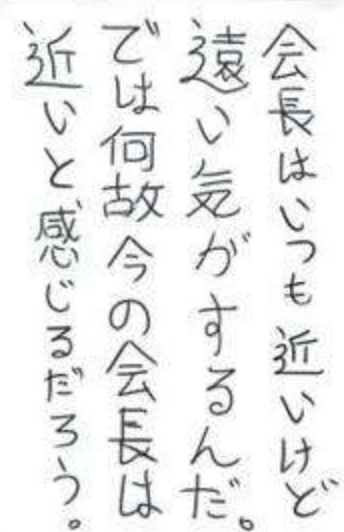 会長はいつも近いけど
遠い気がするんだ。
では何故今の会長は
近いと感じるだろう。